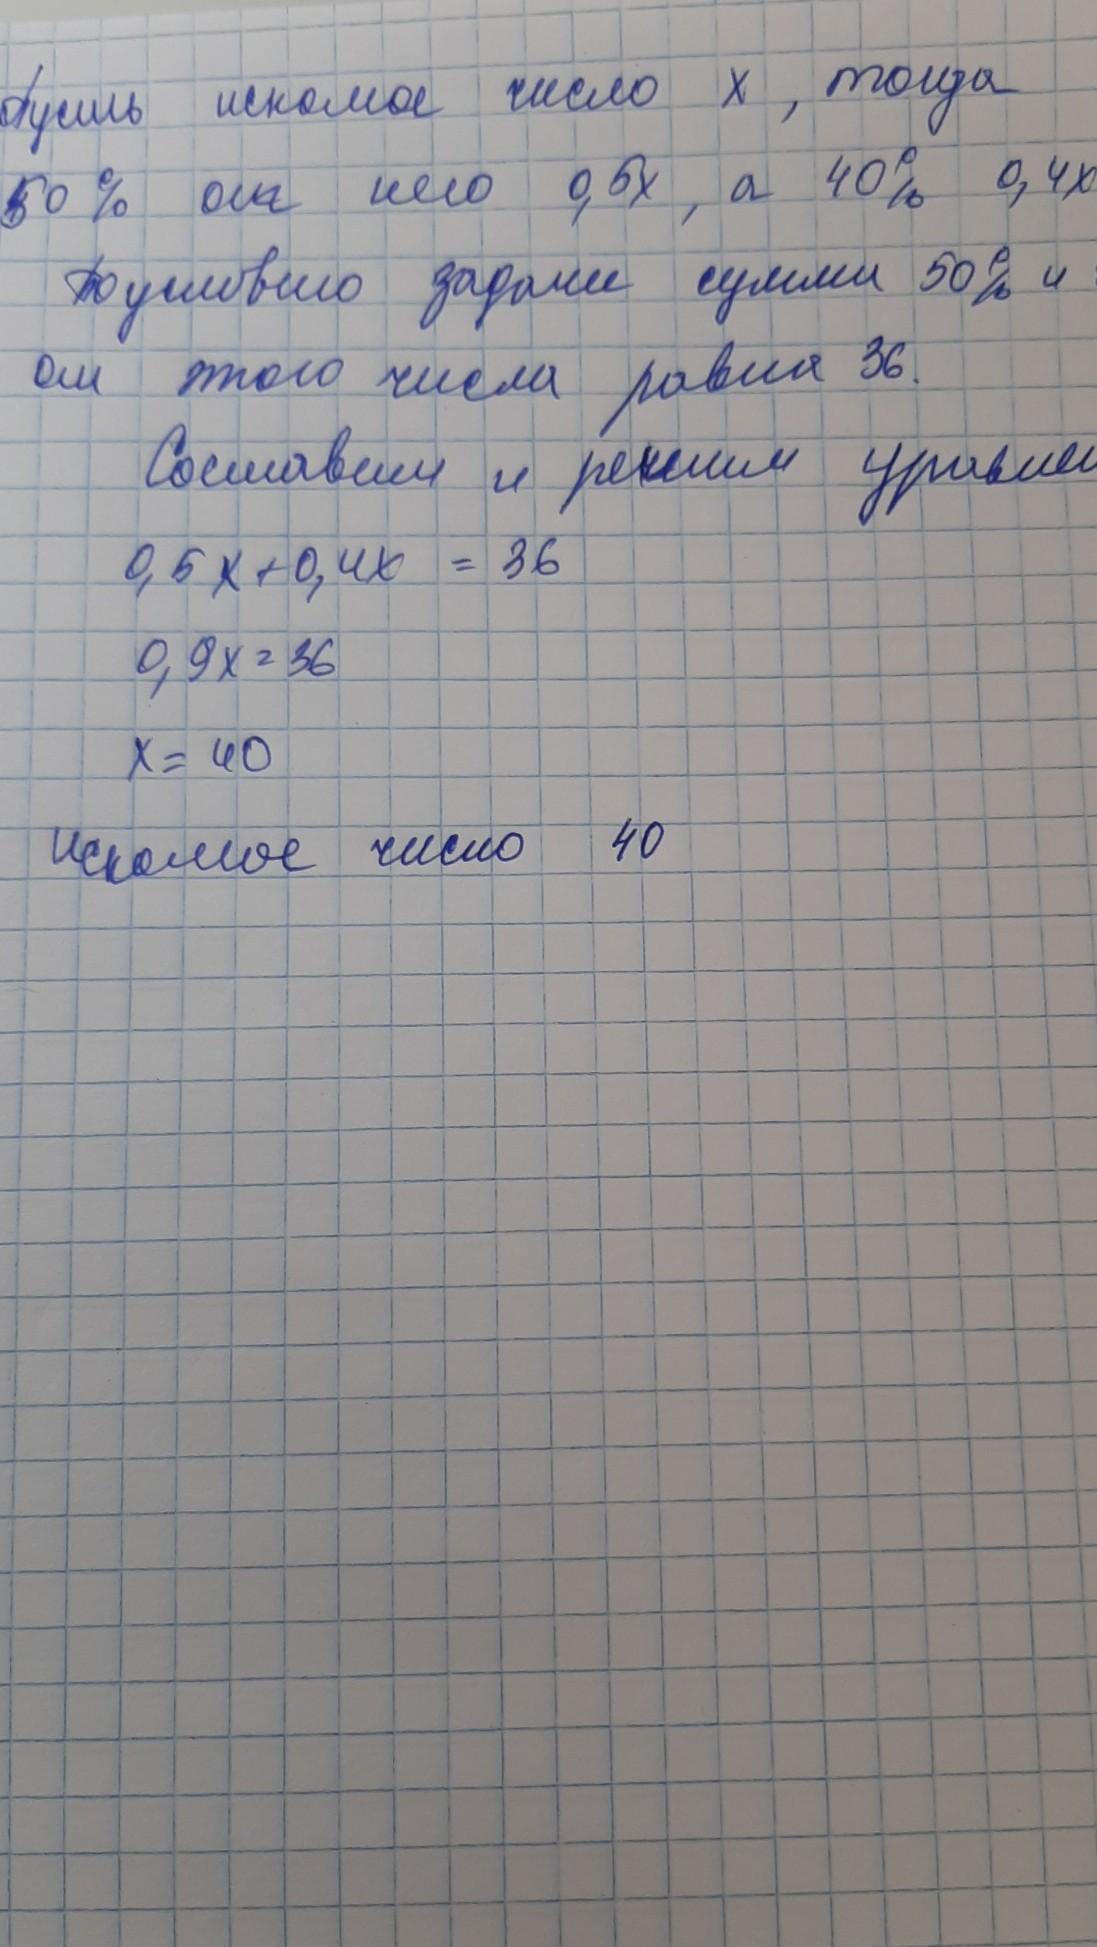 Пусть искомое число x, тогда
50% от него 0,5x, а 40% 0,4x
По условию задачи сумма 50% и
от этого числа равна 36.
Составим и решим уравнен
0,5x+0,4x = 36
0,9x=36
x= 40
Искомое число 40